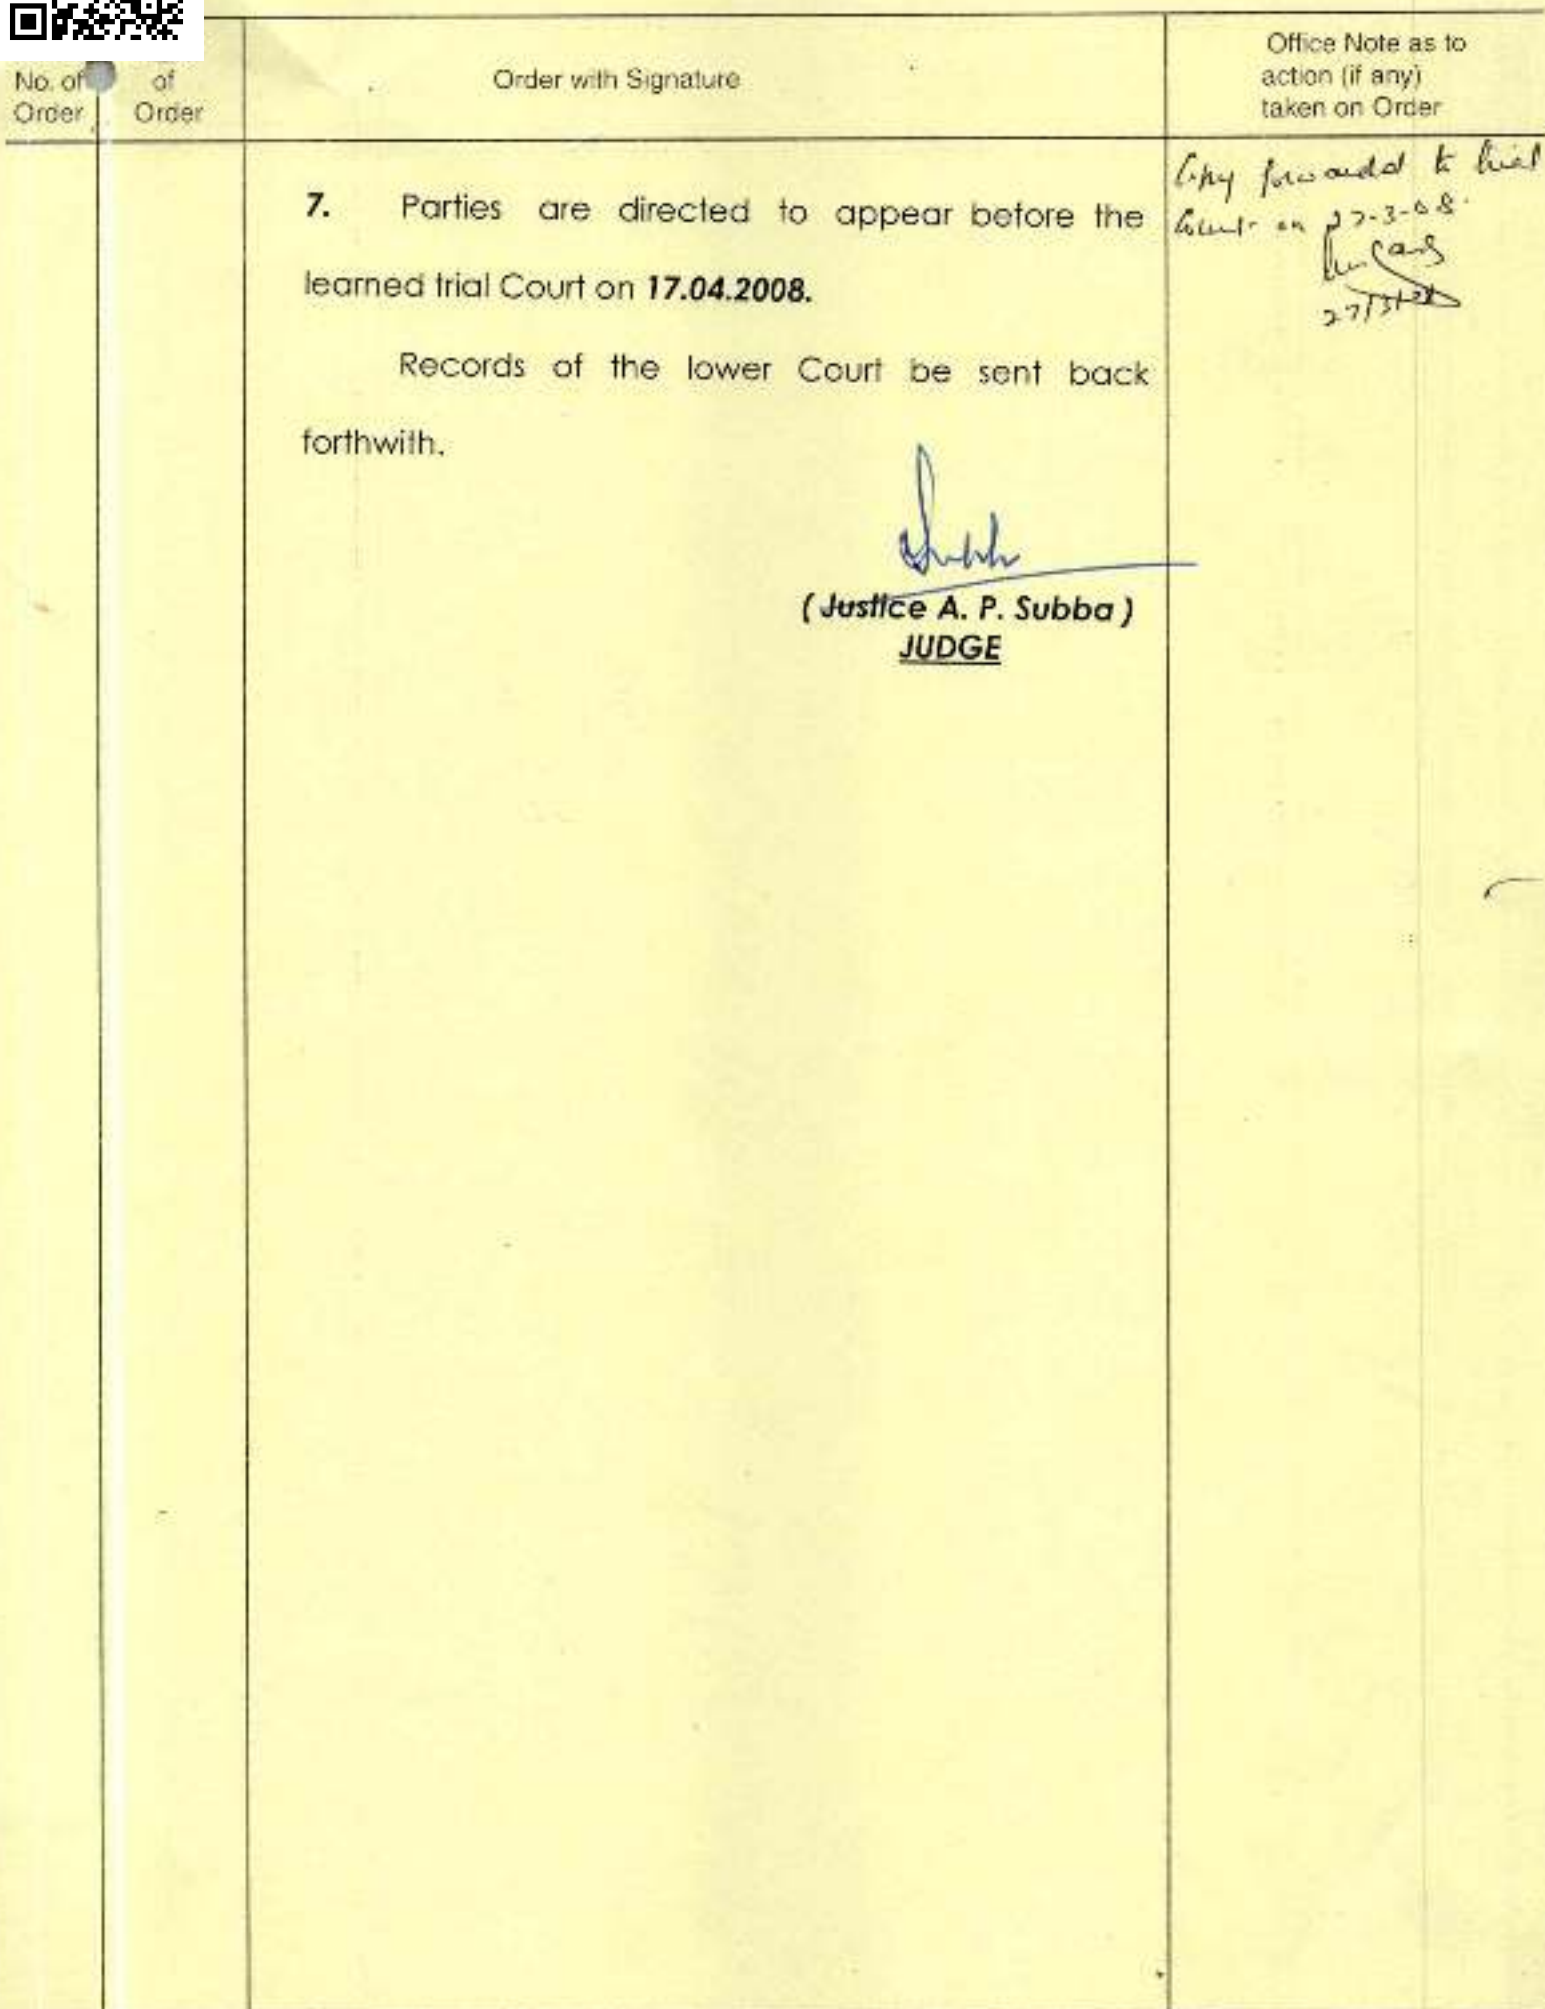 No. of
Order
of
Order
Order with Signature
Office Note as to
action (if any)
taken on Order
7. Parties are directed to appear before the
learned trial Court on 17.04.2008.
Records of the lower Court be sent back
forthwith.
( Justice A. P. Subba )
JUDGE
Copy forwarded to trial
Court on 27-3-08.